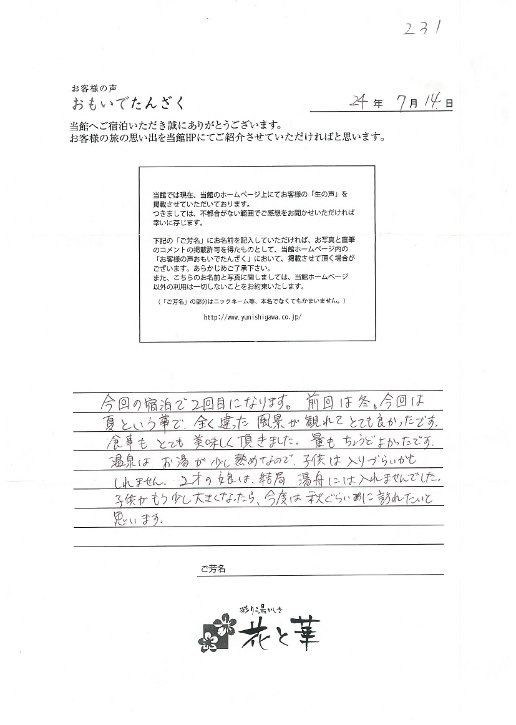 231
お客様の声
おもいでたんざく
24年 7月 14日
当館へご宿泊いただき誠にありがとうございます。
お客様の旅の思い出を当館HPにてご紹介させていただければと思います。
当館では現在、当館のホームページ上にてお客様の「生の声」を
掲載させていただいております。
つきましては、不都合がない範囲でご感想をお聞かせいただければ
幸いに存じます。
下記の「ご芳名」にお名前を記入していただければ、お写真と直筆
のコメントの掲載許可を得たものとして、当館ホームページ内の
「お客様の声おもいでたんざく」において、掲載させて頂く場合が
ございます。あらかじめご了承下さい。
また、こちらのお名前と写真に関しましては、当館ホームページ
以外の利用は一切しないことをお約束いたします。
（「ご芳名」の部分はニックネーム等、本名でなくてもかまいません。）
http://www.yunishigawa.co.jp/
今回の宿泊で2回目になります。前回は冬。今回は
夏という事で、全く違った風景が観れてとても良かったです。
食事もとても美味しく頂きました。量もちょうどよかったです。
温泉はお湯が少し熱めなので、子供は入りづらいかも
しれません。2才の娘は、結局湯舟には入れませんでした。
子供がもう少し大きくなったら、今度は秋ぐらいに訪れたいと
思います。
ご芳名
彩り湯かしき
花と華